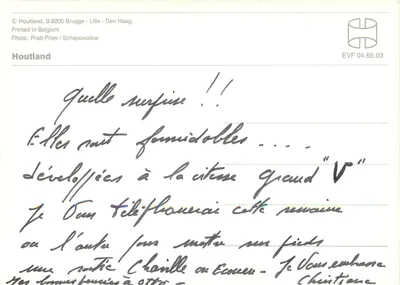 © Houtland, B-8200 Brugge - Lille - Den Haag,
Printed in Belgium
Photo: Pratt-Pries / Schapowalow
Houtland
EVF 04.65.03
Quelle surprise !!
Elles sont formidables ....
développées à la vitesse grand "V"
Je Vous téléphonerai cette semaine
ou l'autre pour mettre sur pieds
une sortie Chaville ou Ecouen - Je Vous embrasse
Mes bonnes pensées à
Christiane